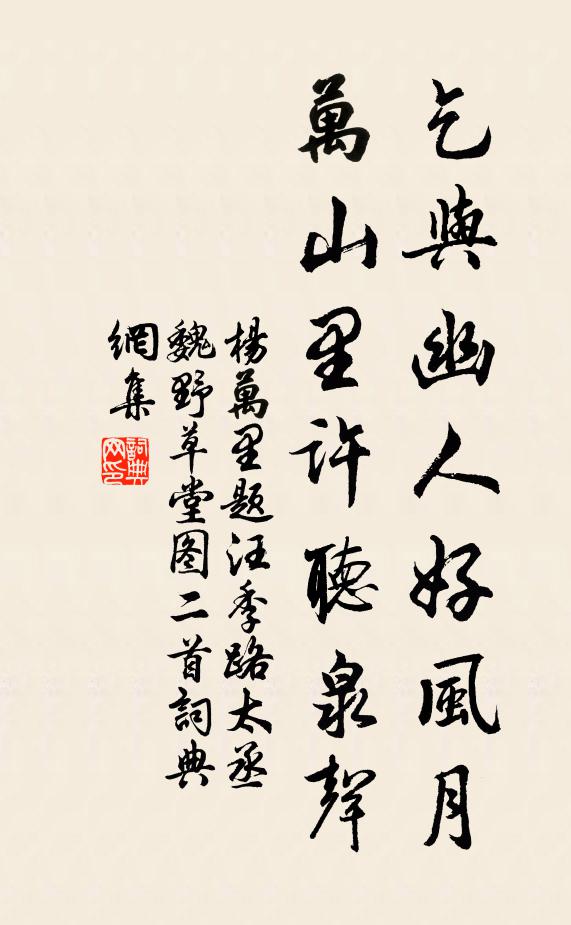 乞與幽人好風月
萬山里許聽泉聲
楊萬里題汪季路太丞
魏野草堂图二首詞典
網集
詞典
网印